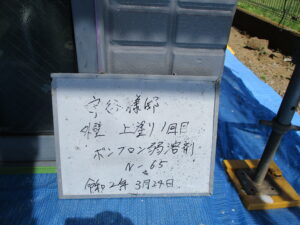 様邸
壁 上塗り1回目
ボンフロン弱溶剤
N-65
令和2年3月24日